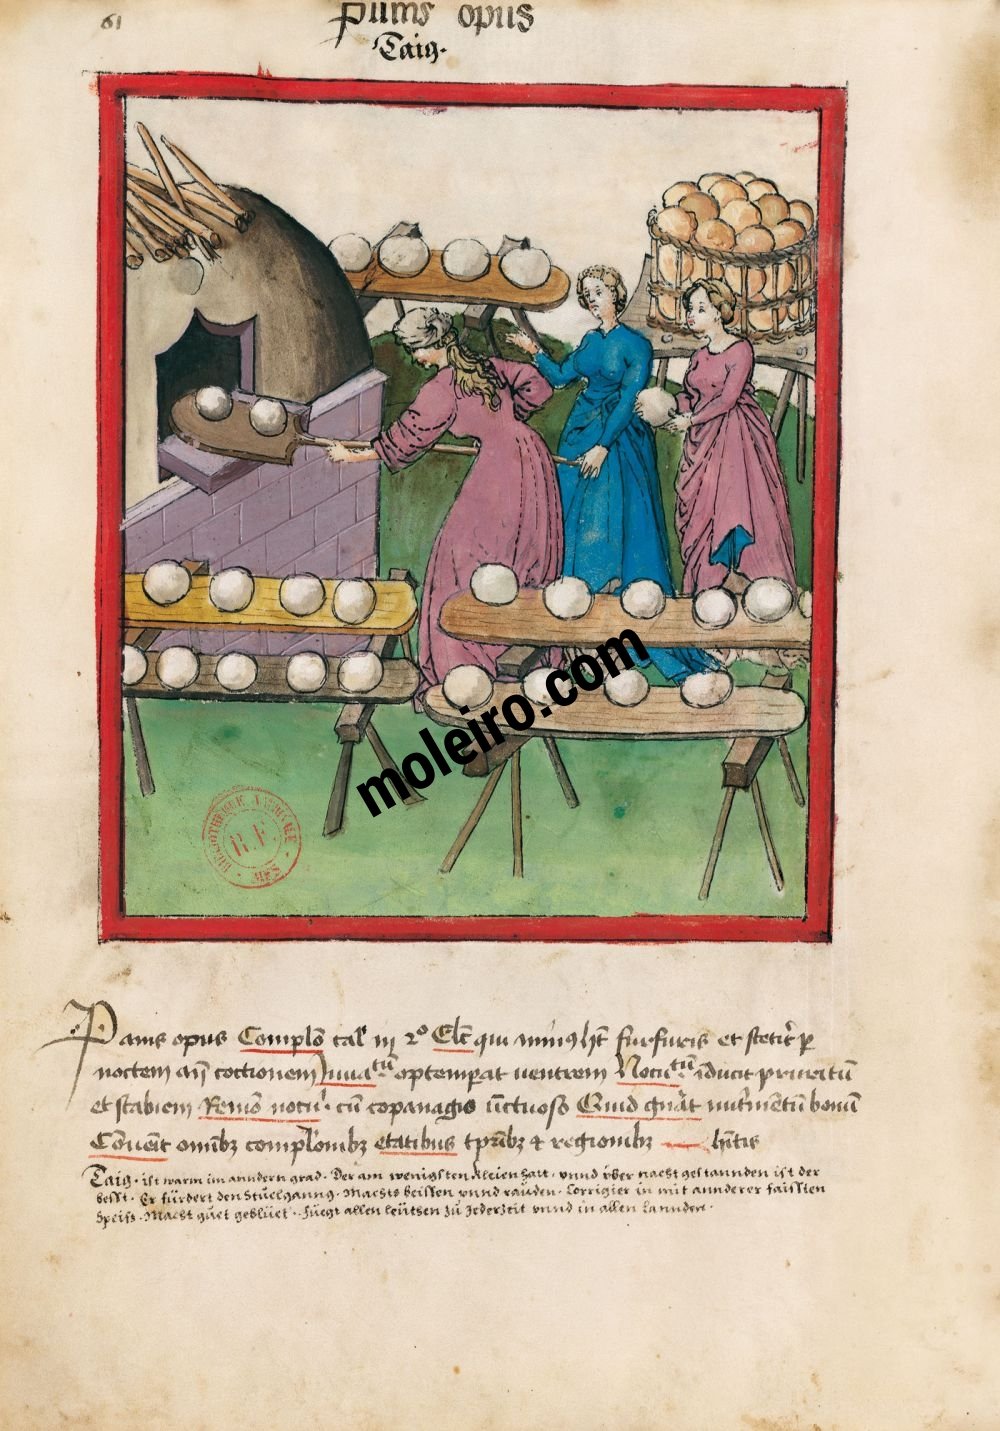 61
panis opus
Taig.
moleiro.com
BIBLIOTHEQUE NATIONALE
R.F
MSS
Panis opus Complō cal' in 2º Elc̄ qui min9 ht̄ furfuris et stetit p
noctem an̄ coctionem Juuatū optemperat uentrem Nocu.tū īducit pruritū
et scabiem Remō nocū. cū copanagio ūctuoso Quid gn̄at nutrimētū bonū
Cōuēit omībꝫ complōnibꝫ etatibus tp̄ribꝫ & regionibꝫ — hītis
Taig. ist warm im anndern grad. Der am wenigsten Kleien hatt. vnnd vber nacht gestannden ist der
besst. Er fürdert den Stüelganng. Machts beissen vnnd rauden. Corrigier in mit annderer faissten
Speiss. Macht guet geblüet. Füegt allen leütsen zu Jederzeit vnnd in allen Lannden.